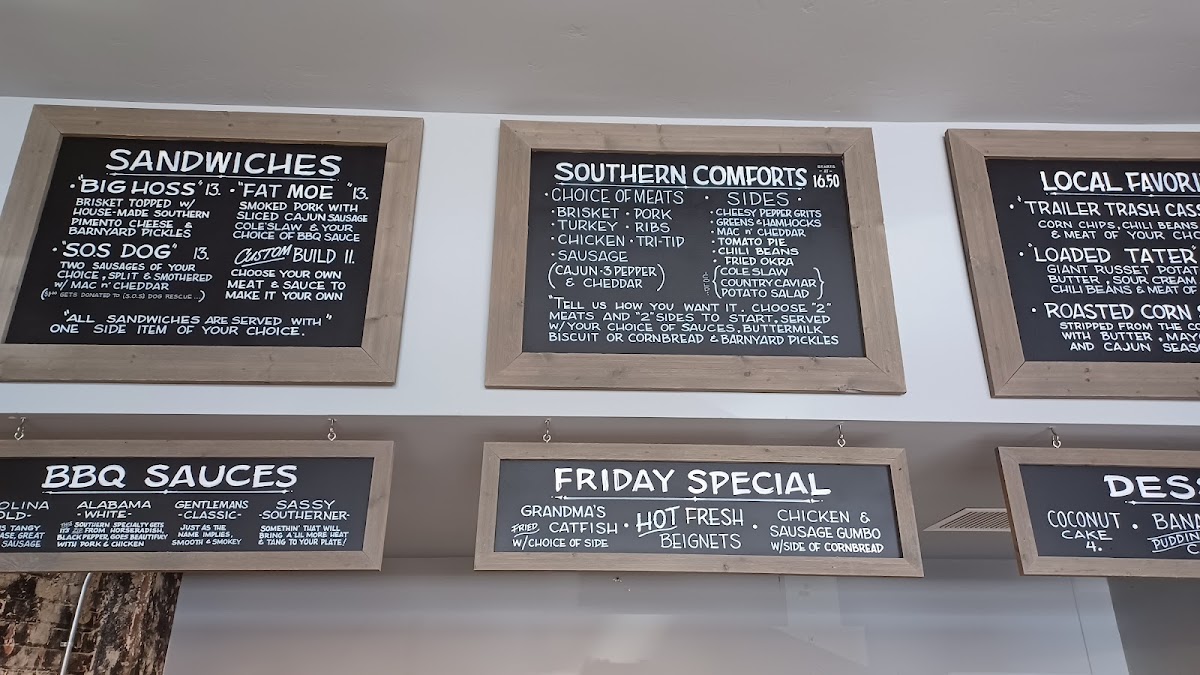 SANDWICHES
• "BIG HOSS" 13.
BRISKET TOPPED W/
HOUSE-MADE SOUTHERN
PIMENTO CHEESE &
BARNYARD PICKLES
• "FAT MOE" 13.
SMOKED PORK WITH
SLICED CAJUN SAUSAGE
COLE'SLAW & YOUR
CHOICE OF BBQ SAUCE
• "S.O.S DOG" 13.
TWO SAUSAGES OF YOUR
CHOICE, SPLIT & SMOTHERED
W/ MAC n' CHEDDAR
GETS DONATED TO (S.O.S) DOG RESCUE...)
CUSTOM BUILD 11.
CHOOSE YOUR OWN
MEAT & SAUCE TO
MAKE IT YOUR OWN
"ALL SANDWICHES ARE SERVED WITH"
ONE SIDE ITEM OF YOUR CHOICE.
SOUTHERN COMFORTS 16.50
• CHOICE OF MEATS
• BRISKET • PORK
• TURKEY • RIBS
• CHICKEN • TRI-TIP
• SAUSAGE
(CAJUN • 3 PEPPER
& CHEDDAR)
• SIDES •
• CHEESY PEPPER GRITS
• GREENS & HAMHOCKS
• MAC n' CHEDDAR
• TOMATO PIE
• CHILI BEANS
• FRIED OKRA
COLE SLAW
COUNTRY CAVIAR
POTATO SALAD
"TELL US HOW YOU WANT IT. CHOOSE "2"
MEATS AND "2" SIDES TO START, SERVED
W/YOUR CHOICE OF SAUCES, BUTTERMILK
BISCUIT OR CORNBREAD & BARNYARD PICKLES
LOCAL FAVORI
• "TRAILER TRASH CAS
CORN CHIPS, CHILI BEANS
& MEAT OF YOUR CHO
• "LOADED TATER
GIANT RUSSET POTAT
BUTTER, SOUR CREAM
CHILI BEANS & MEAT OF
• ROASTED CORN
STRIPPED FROM THE CO
WITH BUTTER, MAYO
AND CAJUN SEAS
BBQ SAUCES
OLINA
OLD-
IS TANGY
ASE, GREAT
SAUSAGE
ALABAMA
-WHITE-
THIS SOUTHERN SPECIALTY GETS
ITS ZIP FROM HORSERADISH,
BLACK PEPPER, GOES BEAUTIFULY
WITH PORK & CHICKEN
GENTLEMANS
-CLASSIC-
JUST AS THE
NAME IMPLIES,
SMOOTH & SMOKEY
SASSY
-SOUTHERNER-
SOMETHIN' THAT WILL
BRING A'LIL MORE HEAT
& TANG TO YOUR PLATE!
FRIDAY SPECIAL
GRANDMA'S
FRIED CATFISH
W/CHOICE OF SIDE
• HOT FRESH •
BEIGNETS
CHICKEN &
SAUSAGE GUMBO
W/SIDE OF CORNBREAD
DESS
COCONUT
CAKE
4.
• BAN
PUDDIN